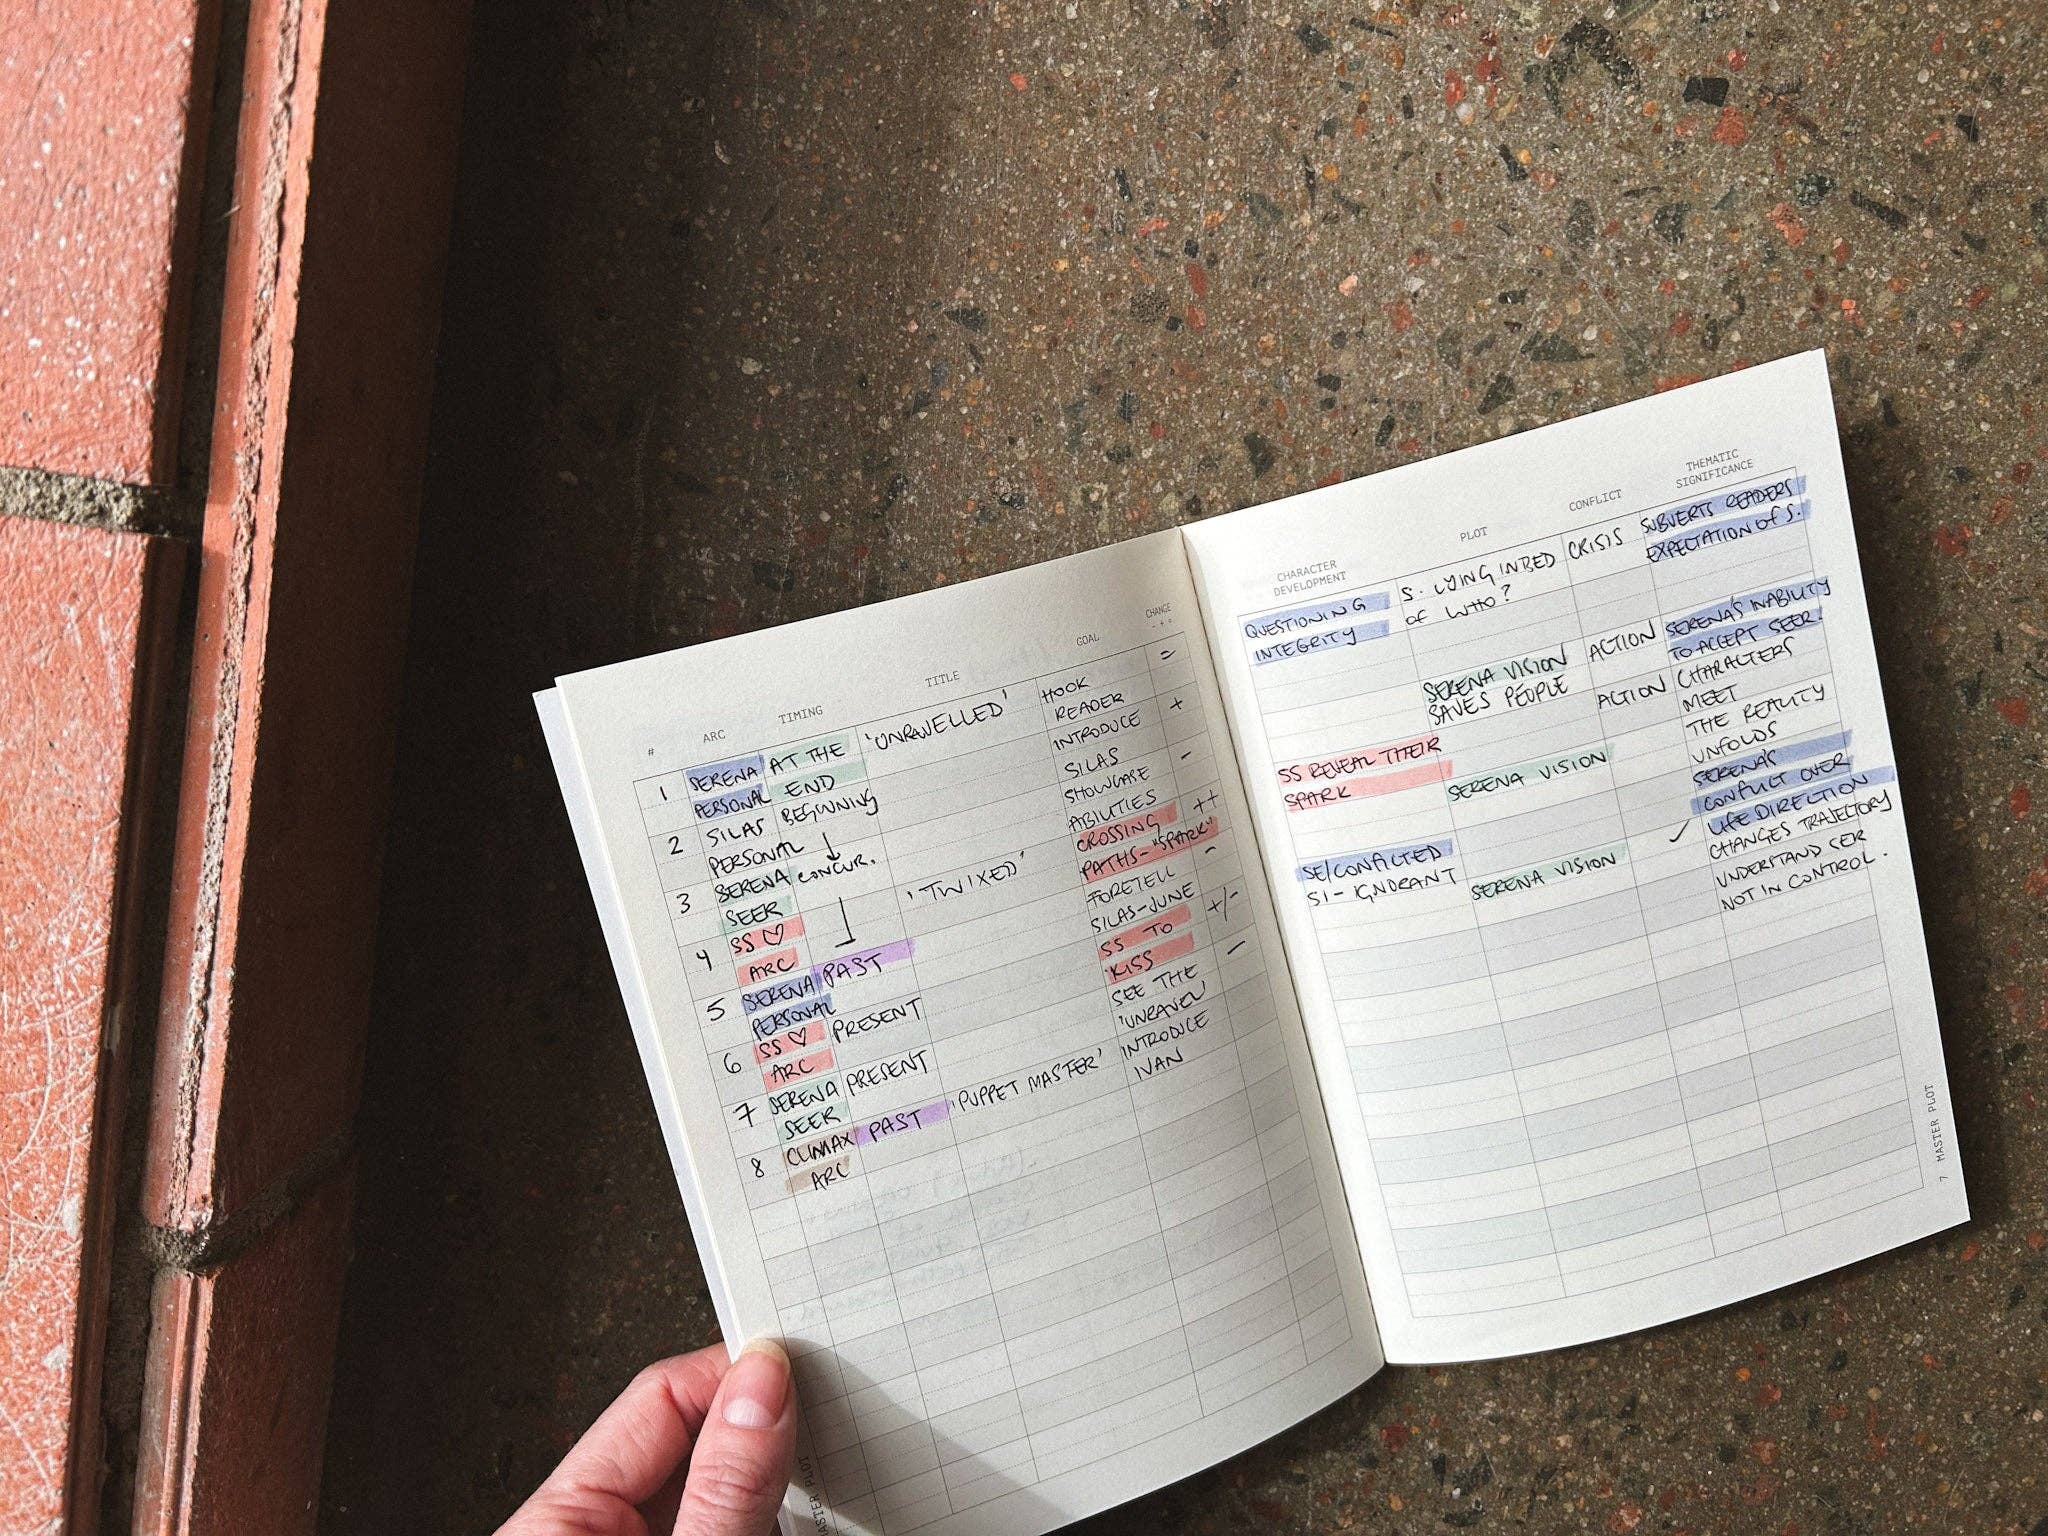 # ARC TIMING TITLE GOAL CHANGE
- + =
1 SERENA AT THE 'UNRAVELLED' HOOK =
PERSONAL END READER
2 SILAS BEGINNING INTRODUCE +
PERSONAL SILAS
3 SERENA CONCUR. SHOWCASE -
SEER ABILITIES
4 SS ♡ 'TWIXED' CROSSING ++
ARC PATHS-"SPARK"
5 SERENA PAST FORETELL -
PERSONAL SILAS-JUNE
6 SS ♡ PRESENT SS TO +/-
ARC KISS
7 SERENA PRESENT SEE THE -
SEER 'UNRAVEL'
8 CLIMAX PAST 'PUPPET MASTER' INTRODUCE
ARC IVAN
MASTER PLOT
CHARACTER
DEVELOPMENT
PLOT
CONFLICT
THEMATIC
SIGNIFICANCE
QUESTIONING S. LYING IN BED CRISIS SUBVERTS READERS
INTEGRITY OF WHO? EXPECTATION OF S.
SERENA VISION ACTION SERENA'S INABILITY
SAVES PEOPLE TO ACCEPT SEER.
ACTION CHARACTERS
MEET
SS REVEAL THEIR THE REALITY
SPARK UNFOLDS
SERENA VISION SERENA'S
CONFLICT OVER
LIFE DIRECTION
SE/CONFICTED ✓ CHANGES TRAJECTORY
SI - IGNORANT
SERENA VISION UNDERSTAND SER
NOT IN CONTROL.
7 MASTER PLOT